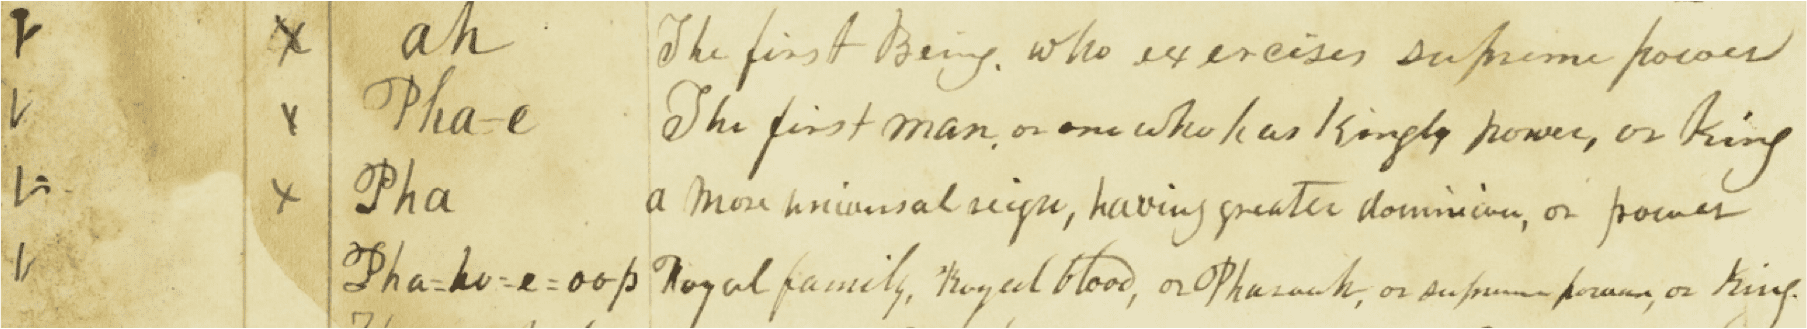 ah The first Being. who exercises supreme power
Pha-e The first man, or one who has Kingly power, or King
Pha a more universal reign, having greater dominion, or power
Pha=ho=e=oop Royal family, Royal blood, or Pharaoh, or supreme power, or King.